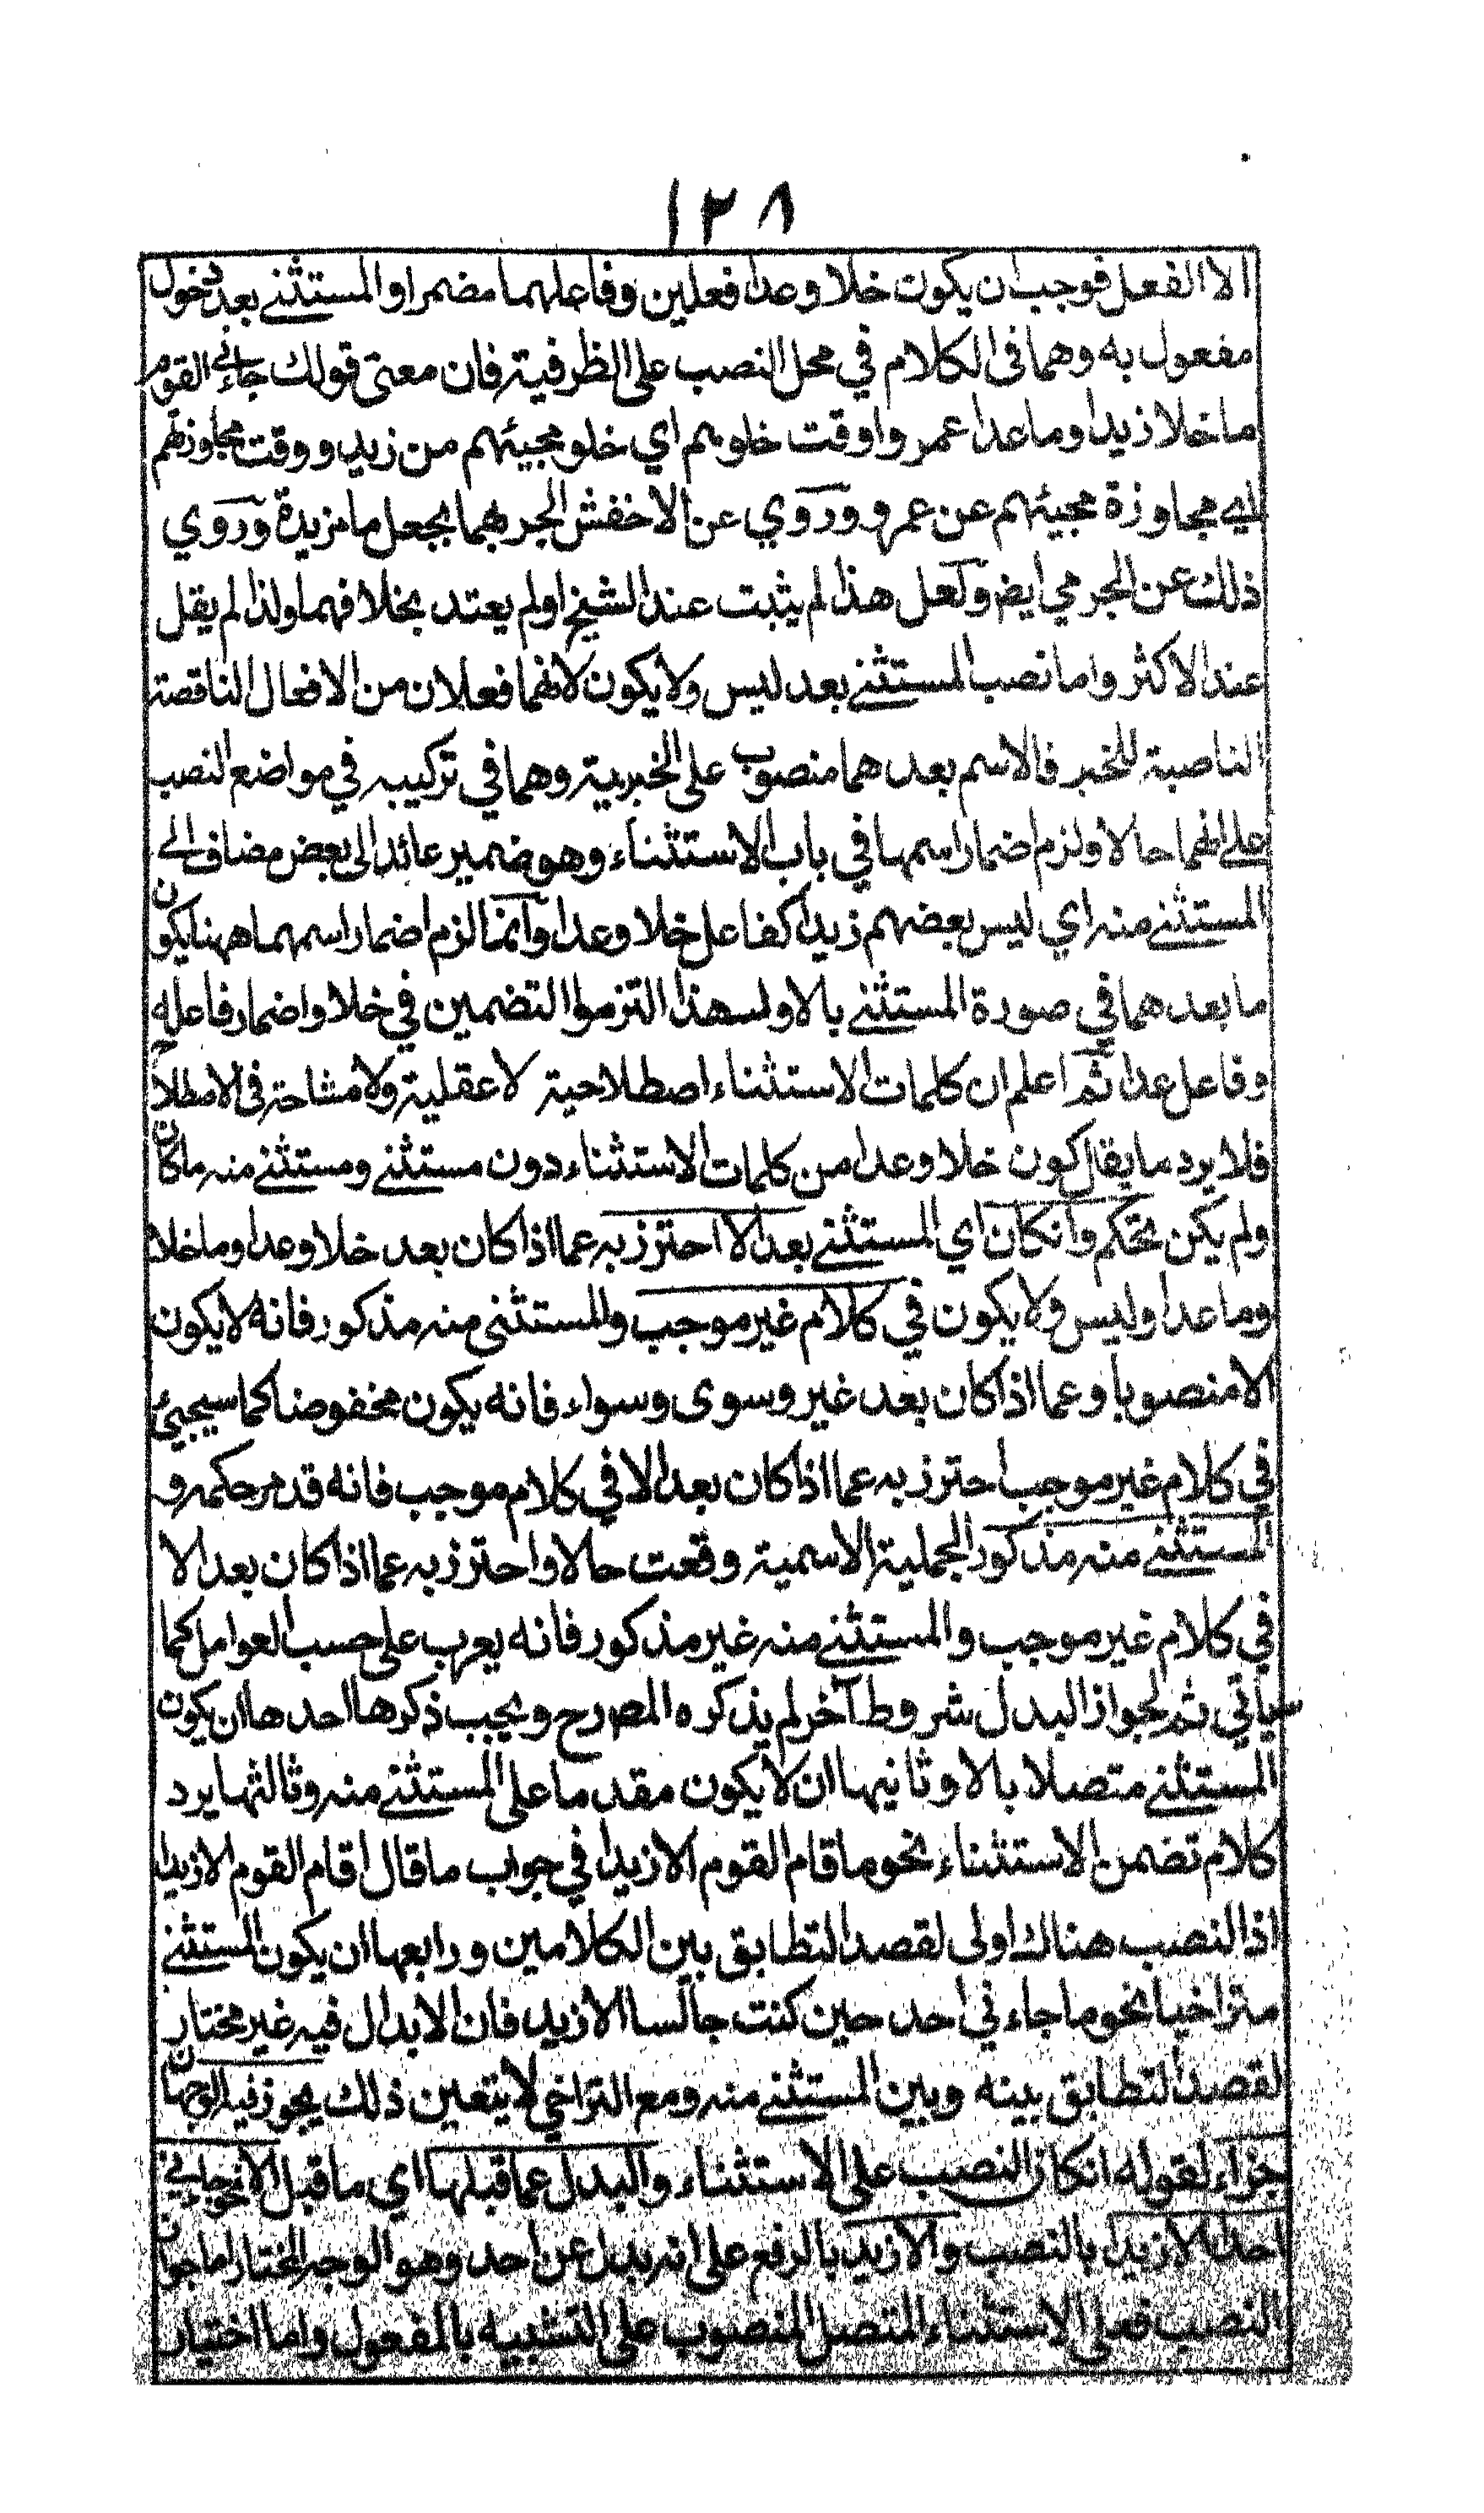 ١٢٨
الا الفعل فوجب ان يكون خلا وعدا فعلين وفاعلهما مضمرا والمستثنے بعد دخول
مفعول به وهما فى الكلام في محل النصب على الظرفية فان معنى قولك جاءني القوم
ما خلا زيدا وما عدا عمروا وقت خلوهم اي خلو مجيئهم من زيد ووقت مجاوزتهم
اي مجاوزة مجيئهم عن عمرو وروي عن الاخفش الجر بهما بجعل ما مزيدة وروي
ذلك عن الجرمي ايض ولعل هذا لم يثبت عند الشيخ او لم يعتد بخلافهما ولذا لم يقل
عند الاكثر واما نصب المستثنے بعد ليس ولا يكون لانهما فعلان من الافعال الناقصة
الناصبة للخبر فالاسم بعدهما منصوب على الخبرية وهما في تركيبه في مواضع النصب
على انهما حالا ولزم اضمار اسمها في باب الاستثناء وهو ضمير عائد الى بعض مضاف الى
المستثنے منه اي ليس بعضهم زيدا كفاعل خلا وعدا وانما الزم اضمار اسمهما ههنا ليكون
ما بعدهما في صورة المستثنے بالا ولهذا التزموا التضمين في خلا واضمار فاعله
وفاعل عدا ثم اعلم ان كلمات الاستثناء اصطلاحية لا عقلية ولا مشاحة فى الاصطلاح
فلا يرد ما يقال كون خلا وعدا من كلمات الاستثناء دون مستثنے ومستثنے منه ما كان
ولم يكن تحكم وانكان اي المستثنے بعد الا احترز به عما اذا كان بعد خلا وعدا وما خلا
وما عدا وليس ولا يكون في كلام غير موجب والمستثنى منه مذكور فانه لا يكون
الا منصوبا وعما اذا كان بعد غير وسوى وسواء فانه يكون مخفوضا كما سيجيئ
في كلام غير موجب احترز به عما اذا كان بعد الا في كلام موجب فانه قد مر حكمه و
المستثنے منه مذكور الجملية الاسمية وقعت حالا واحترز به عما اذا كان بعد الا
في كلام غير موجب والمستثنے منه غير مذكور فانه يعرب على حسب العوامل كما
سياتي ثم لجواز البدل شروط آخر لم يذكره المصرح ويجب ذكرها احدها ان يكون
المستثنے متصلا بالا وثانيها ان لا يكون مقدما على المستثنے منه وثالثها يرد
كلام تضمن الاستثناء نحو ما قام القوم الا زيدا في جواب ما قال اقام القوم الا زيدا
اذ النصب هناك اولى لقصد التطابق بين الكلامين ورابعها ان يكون المستثنے
متراخيا نحو ما جاءني احد حين كنت جالسا الا زيد فان الابدال فيه غير مختار
لقصد التطابق بينه وبين المستثنے منه ومع التراخي لا يتعين ذلك يجوز فيه الوجهان
جزاء لقوله انكان النصب على الاستثناء والبدل عما قبلها اي ما قبل الا نحو جاءني
احد الا زيدا بالنصب والا زيد بالرفع على انه بدل عن احد وهو الوجه المختار اما جواز
النصب فعلى الاستثناء المتصل المنصوب على التشبيه بالمفعول واما اختيار